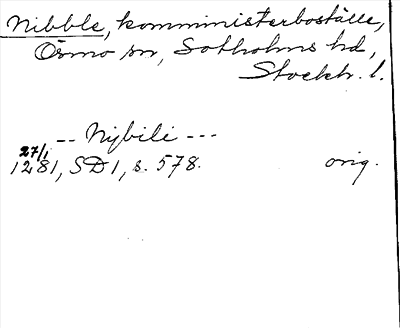 Nibble, komministerboställe,
Ösmo sn, Sotholms hd,
Stockh. l.
-- Nybili ---
27/1
1281, SD 1, s. 578. orig.